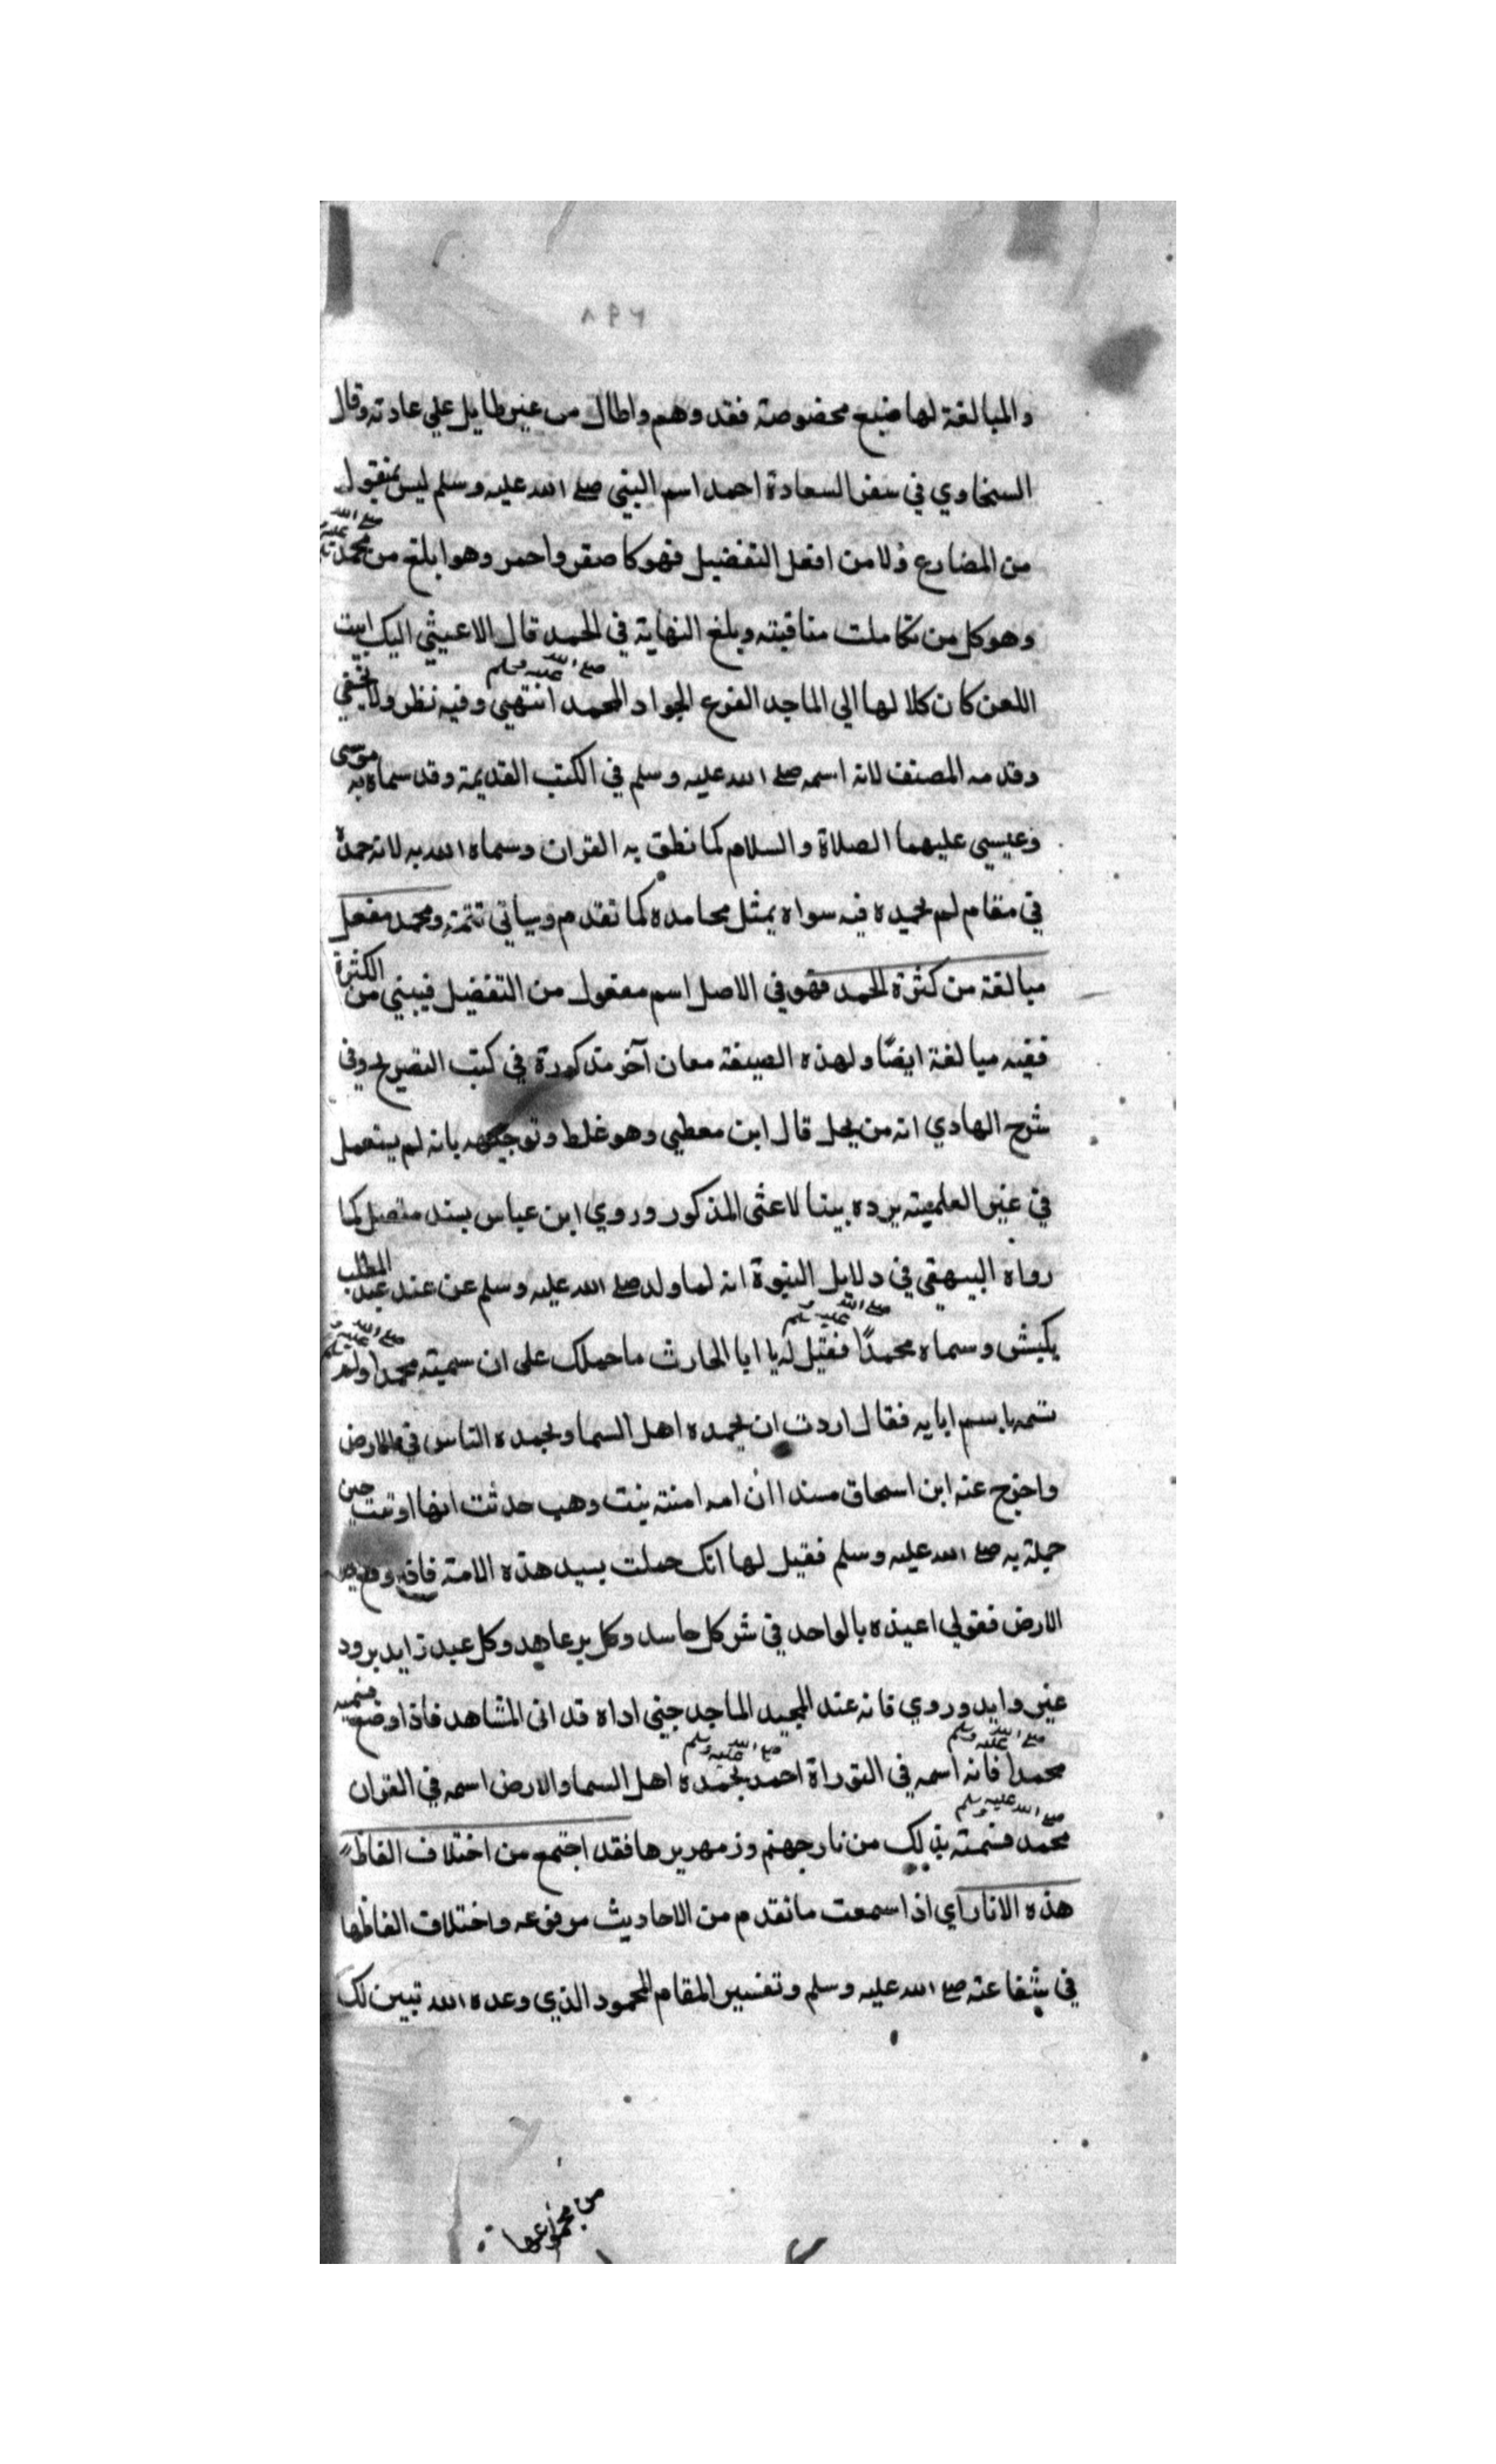 ٨٩٢
والمبالغة لها ضيع مخضوصة فقد وهم واطال من غير طايل علي عادته وقال
السنحاوي في سفر السعادة احمد اسم النبي صلى الله عليه وسلم ليس بمنقول
من المضارع ولا من افعل التفضيل فهو كاصفر واحمر وهو ابلغ من محمد صلى الله عليه وسلم
وهو كل من تكاملت مناقبته وبلغ النهاية في الحمد قال الاعيشي اليك ابيت
اللعن كان كلا لها الي الماجد الفرع الجواد المحمد صلى الله عليه وسلم انتهي وفيه نظر ولا يخفي
وقدمه المصنف لانه اسمه صلى الله عليه وسلم في الكتب القديمة وقد سماه به موسى
وعيسي عليهما الصلاة والسلام كما نطق به القران وسماه الله به لانه حمده
في مقام لم يحمده فيه سواه بمثل محامده كما تقدم وسياتي تتمته ومحمد مفعل
مبالغة من كثرة الحمد فهو في الاصل اسم مفعول من التفضيل فيبني من الكثرة
ففيه مبالغة ايضا ولهذه الصيغة معان آخر مذكورة في كتب التصريح وفي
شرح الهادي انه من يحل قال ابن معطي وهو غلط وتوجيهه بانه لم يستعمل
في غير العلمية يرده بيتا لاعثى المذكور وروي ابن عباس بسند متصل كما
رواه البيهقي في دلايل النبوة انه لما ولد صلى الله عليه وسلم عن عند عبد المطلب
بكبش وسماه محمدًا صلى الله عليه وسلم فقيل له يا ابا الحارث ما حملك على ان سميته محمدا صلى الله عليه وسلم ولم
تسمه باسم ابايه فقال اردت ان يحمده اهل السما ويحمده الناس في الارض
واخرج عنه ابن اسحاق مسندا ان امه امنته بنت وهب حدثت انها اوتيت حين
حملة به صلى الله عليه وسلم فقيل لها انك حملت بسيد هذه الامة فاذا وقع
الارض فقولي اعيذه بالواحد في شر كل حاسد وكل بر عاهد وكل عبد زايد برود
غير وايد وروي فانه عند المجيد الماجد جيني اداه قد اتى المشاهد فاذا وضع فسميه
محمدا صلى الله عليه وسلم فانه اسمه في التوراة احمد صلى الله عليه وسلم يحمده اهل السما والارض اسمه في القران
محمد صلى الله عليه وسلم فسمته بذلك من نار جهنم وزمهريرها فقد اجتمع من اختلاف الفاظ
هذه الاثار اي اذا سمعت ما تقدم من الاحاديث مرفوعه واختلاف الفاظها
في شفاعته صلى الله عليه وسلم وتفسير المقام المحمود الذي وعده الله تبين لك
من مجموعها